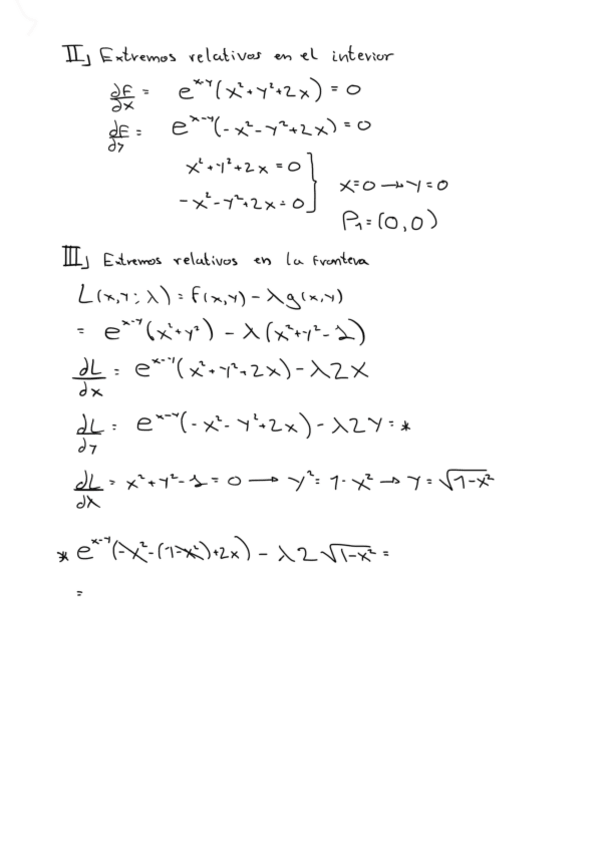 II) Extremos relativos en el interior
∂F/∂x = e^(x-y)(x²+y²+2x) = 0
∂F/∂y = e^(x-y)(-x²-y²+2x) = 0
x²+y²+2x = 0
-x²-y²+2x = 0 } x=0 → y=0
P₁=(0,0)
III) Extremos relativos en la frontera
L(x,y;λ) = f(x,y) - λg(x,y)
= e^(x-y)(x²+y²) - λ(x²+y²-1)
∂L/∂x = e^(x-y)(x²+y²+2x) - λ2x
∂L/∂y = e^(x-y)(-x²-y²+2x) - λ2y = *
∂L/∂λ = x²+y²-1 = 0 → y² = 1-x² → y = √(1-x²)
* e^(x-y)(-x²-(1-x²)+2x) - λ2√(1-x²) =
=